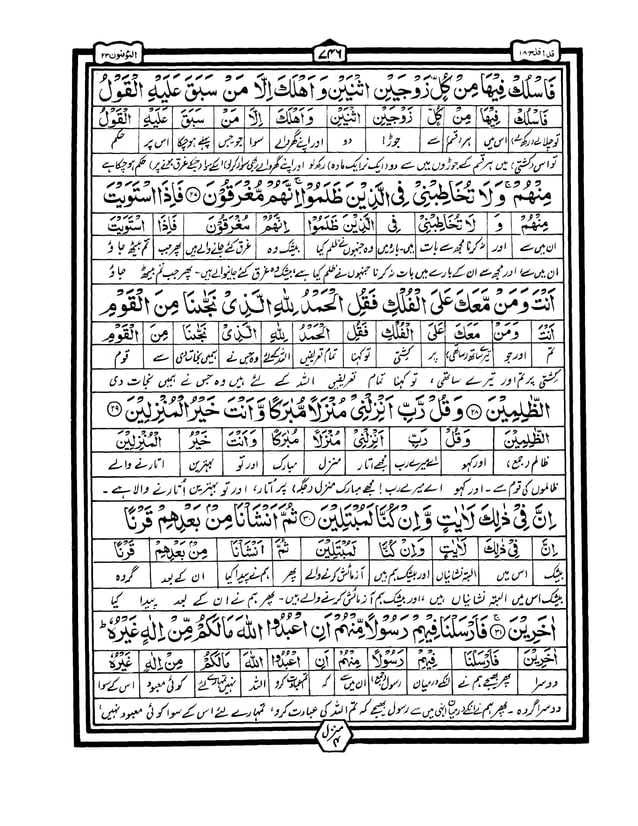 قد افلح ۱۸
۷۴۶
المؤمنون ۲۳
فَاسْلُكْ فِيْهَا مِنْ كُلٍّ زَوْجَيْنِ اثْنَيْنِ وَاَهْلَكَ اِلَّا مَنْ سَبَقَ عَلَيْهِ الْقَوْلُ
فَاسْلُكْ فِيْهَا مِنْ كُلٍّ زَوْجَيْنِ اثْنَيْنِ وَاَهْلَكَ اِلَّا مَنْ سَبَقَ عَلَيْهِ الْقَوْلُ
تو چلالے (رکھ لے) اس میں ہر قسم سے جوڑا دو اور اپنے گھر والے سوا جو جس پہلے ہوچکا اس پر حکم
تو اس (کشتی) میں ہر قسم کے جوڑوں میں سے دو (ایک نر ایک مادہ) رکھ لو اور اپنے گھر والے
مِنْهُمْ ۚ وَلَا تُخَاطِبْنِيْ فِي الَّذِيْنَ ظَلَمُوْا ۚ اِنَّهُمْ مُّغْرَقُوْنَ ۲۷ فَاِذَا اسْتَوَيْتَ
مِنْهُمْ وَ لَا تُخَاطِبْنِيْ فِي الَّذِيْنَ ظَلَمُوْا اِنَّهُمْ مُغْرَقُوْنَ فَاِذَا اسْتَوَيْتَ
ان میں سے اور نہ کرنا مجھ سے بات میں۔بارہ میں وہ جنہوں نے ظلم کیا بیشک وہ غرق کئے جانے والے ہیں پھر جب تم بیٹھ جاؤ
ان میں سے اور مجھ سے ان کے بارے میں بات نہ کرنا جنہوں نے ظلم کیا ہے بیشک وہ غرق کئے جانیوالے ہیں۔ پھر جب تم بیٹھ جاؤ
اَنْتَ وَمَنْ مَّعَكَ عَلَى الْفُلْكِ فَقُلِ الْحَمْدُ لِلّٰهِ الَّذِيْ نَجّٰىنَا مِنَ الْقَوْمِ
اَنْتَ وَمَنْ مَعَكَ عَلَى الْفُلْكِ فَقُلِ الْحَمْدُ لِلّٰهِ الَّذِيْ نَجّٰىنَا مِنَ الْقَوْمِ
تم اور جو تیرے ساتھ (ساتھی) پر کشتی تو کہنا تمام تعریفیں اللہ کیلئے وہ جس نے ہمیں نجات دی سے قوم
کشتی پر تم اور تیرے ساتھی، تو کہنا تمام تعریفیں اللہ کے لئے ہیں وہ جس نے ہمیں نجات دی
الظّٰلِمِيْنَ ۲۸ وَقُلْ رَّبِّ اَنْزِلْنِيْ مُنْزَلًا مُّبٰرَكًا وَّاَنْتَ خَيْرُ الْمُنْزِلِيْنَ ۲۹
الظّٰلِمِيْنَ وَقُلْ رَبِّ اَنْزِلْنِيْ مُنْزَلًا مُبٰرَكًا وَاَنْتَ خَيْرُ الْمُنْزِلِيْنَ
ظالم (جمع) اور کہو اے میرے رب مجھے اتار منزل مبارک اور تو بہترین اتارنے والے
ظالموں کی قوم سے۔ اور کہو اے میرے رب! مجھے مبارک منزل (جگہ) پر اُتار، اور تو بہترین اُتارنے والا ہے۔
اِنَّ فِيْ ذٰلِكَ لَاٰيٰتٍ وَّاِنْ كُنَّا لَمُبْتَلِيْنَ ۳۰ ثُمَّ اَنْشَاْنَا مِنْ بَعْدِهِمْ قَرْنًا
اِنَّ فِيْ ذٰلِكَ لَاٰيٰتٍ وَاِنْ كُنَّا لَمُبْتَلِيْنَ ثُمَّ اَنْشَاْنَا مِنْ بَعْدِهِمْ قَرْنًا
بیشک اس میں البتہ نشانیاں اور بیشک ہم ہیں آزمائش کرنے والے پھر ہم نے پیدا کیا ان کے بعد گروہ
بیشک اس میں البتہ نشانیاں ہیں، اور بیشک ہم آزمائش کرنے والے ہیں۔ پھر ہم نے ان کے بعد پیدا کیا
اٰخَرِيْنَ ۳۱ فَاَرْسَلْنَا فِيْهِمْ رَسُوْلًا مِّنْهُمْ اَنِ اعْبُدُوا اللّٰهَ مَا لَكُمْ مِّنْ اِلٰهٍ غَيْرُهٗ ؕ
اٰخَرِيْنَ فَاَرْسَلْنَا فِيْهِمْ رَسُوْلًا مِنْهُمْ اَنِ اعْبُدُوا اللّٰهَ مَالَكُمْ مِنْ اِلٰهٍ غَيْرُهٗ
دوسرا پھر بھیجے ہم نے انکے درمیان رسول (جمع) ان میں سے کہ تم عبادت کرو اللہ نہیں تمہارے لئے کوئی معبود اس کے سوا
دوسرا گروہ۔ پھر ہم نے انکے درمیان انہی میں سے رسول بھیجے کہ تم اللہ کی عبادت کرو، تمہارے لئے اس کے سوا کوئی معبود نہیں
منزل ۴